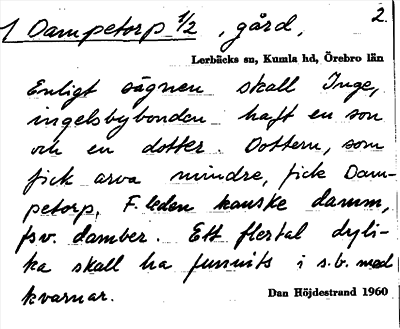 1 Dampetorp 1/2, gård, 2.
Lerbäcks sn, Kumla hd, Örebro län
Enligt sägnen skall Inge,
ingelsbybonden haft en son
och en dotter. Dottern, som
fick arva mindre, fick Dam-
petorp. F. leden kanske damm,
fsv. damber. Ett flertal dyli-
ka skall ha funnits i s.b. med
kvarnar.
Dan Höjdestrand 1960